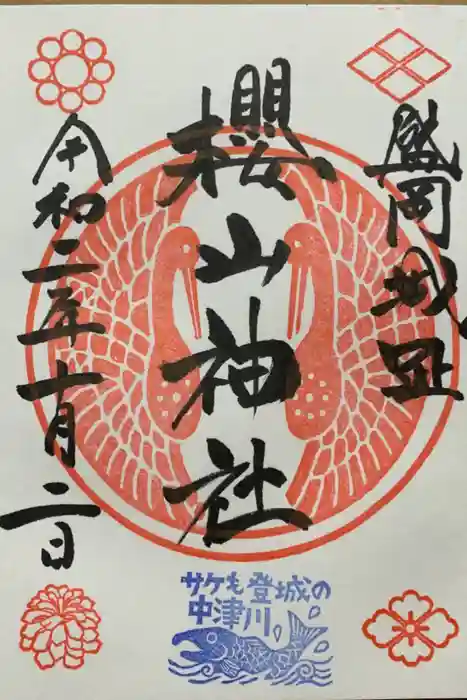 盛岡城跡
櫻山神社
令和二年十月二日
サケも登城の
中津川